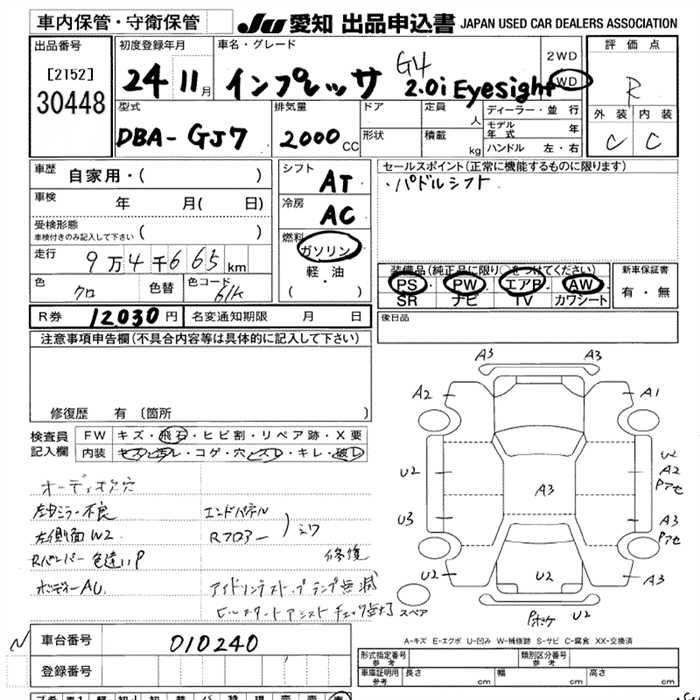 車内保管・守衛保管
JU 愛知 出品申込書 JAPAN USED CAR DEALERS ASSOCIATION
出品番号
[2152]
30448
初度登録年月
24 11月
車名・グレード
インプレッサ G4 2.0i Eyesight
2WD
WD
評価点
R
外装 内装
C C
型式
DBA-GJ7
排気量
2000CC
ドア
形状
定員
人
積載
kg
ディーラー・並行
モデル年式 年
ハンドル 左・右
車歴
自家用・( )
車検
年 月( 日)
受検形態
車検付きのみ記入して下さい ( )
走行
9万4千665km
色
クロ
色替
色コード
61K
R券 12030円
名変通知期限 月 日
シフト
AT
冷房
AC
燃料
ガソリン
軽・油
( ・ )
セールスポイント(正常に機能するものに限ります)
・パドルシフト
装備品(純正品に限り○をつけてください)
PS PW エアB AW
SR ナビ TV カワシート
新車保証書
有・無
後日品
注意事項申告欄(不具合内容等は具体的に記入して下さい)
修復歴 有(箇所
検査員記入欄
FW キズ・飛石・ヒビ割・リペア跡・X要
内装 キズ・汚レ・コゲ・穴・スレ・キレ・破レ
オーディオ穴
左ミラー不良
左側面W2
Rバンパー色違いP
ボディーAU
エンドパネル
Rフロアー
修復
アイドリングストップランプ点滅
A3 A3
A2 A1
U2 W2
A2
Pアセ
U3 A3
Pアセ
A3
U2 U2 A3
スペア
Pボケ U2
A-キズ E-エクボ U-凹み W-補修跡 S-サビ C-腐食 XX-交換済
車台番号 010240
登録番号
形式指定番号
参考
類別区分番号
参考
車庫証明用
参考
長さ cm 幅 cm 高さ cm